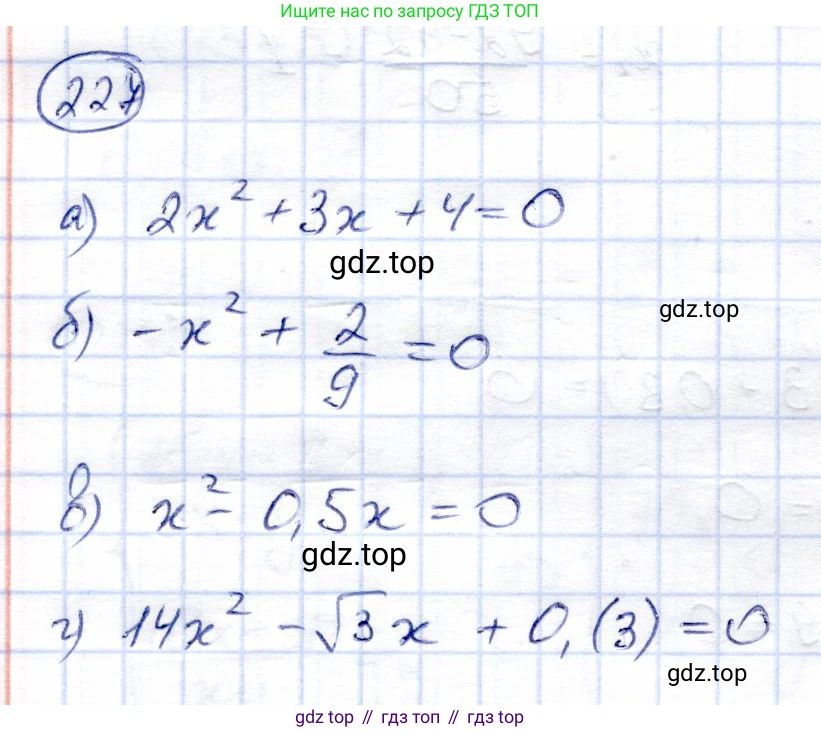 Ищите нас по запросу ГДЗ ТОП
227
а) 2x² + 3x + 4 = 0
gdz.top
gdz.top
б) -x² + 2/9 = 0
в) x² - 0,5x = 0
gdz.top
г) 14x² - √3x + 0,(3) = 0
gdz.top
gdz top // гдз топ // gdz top